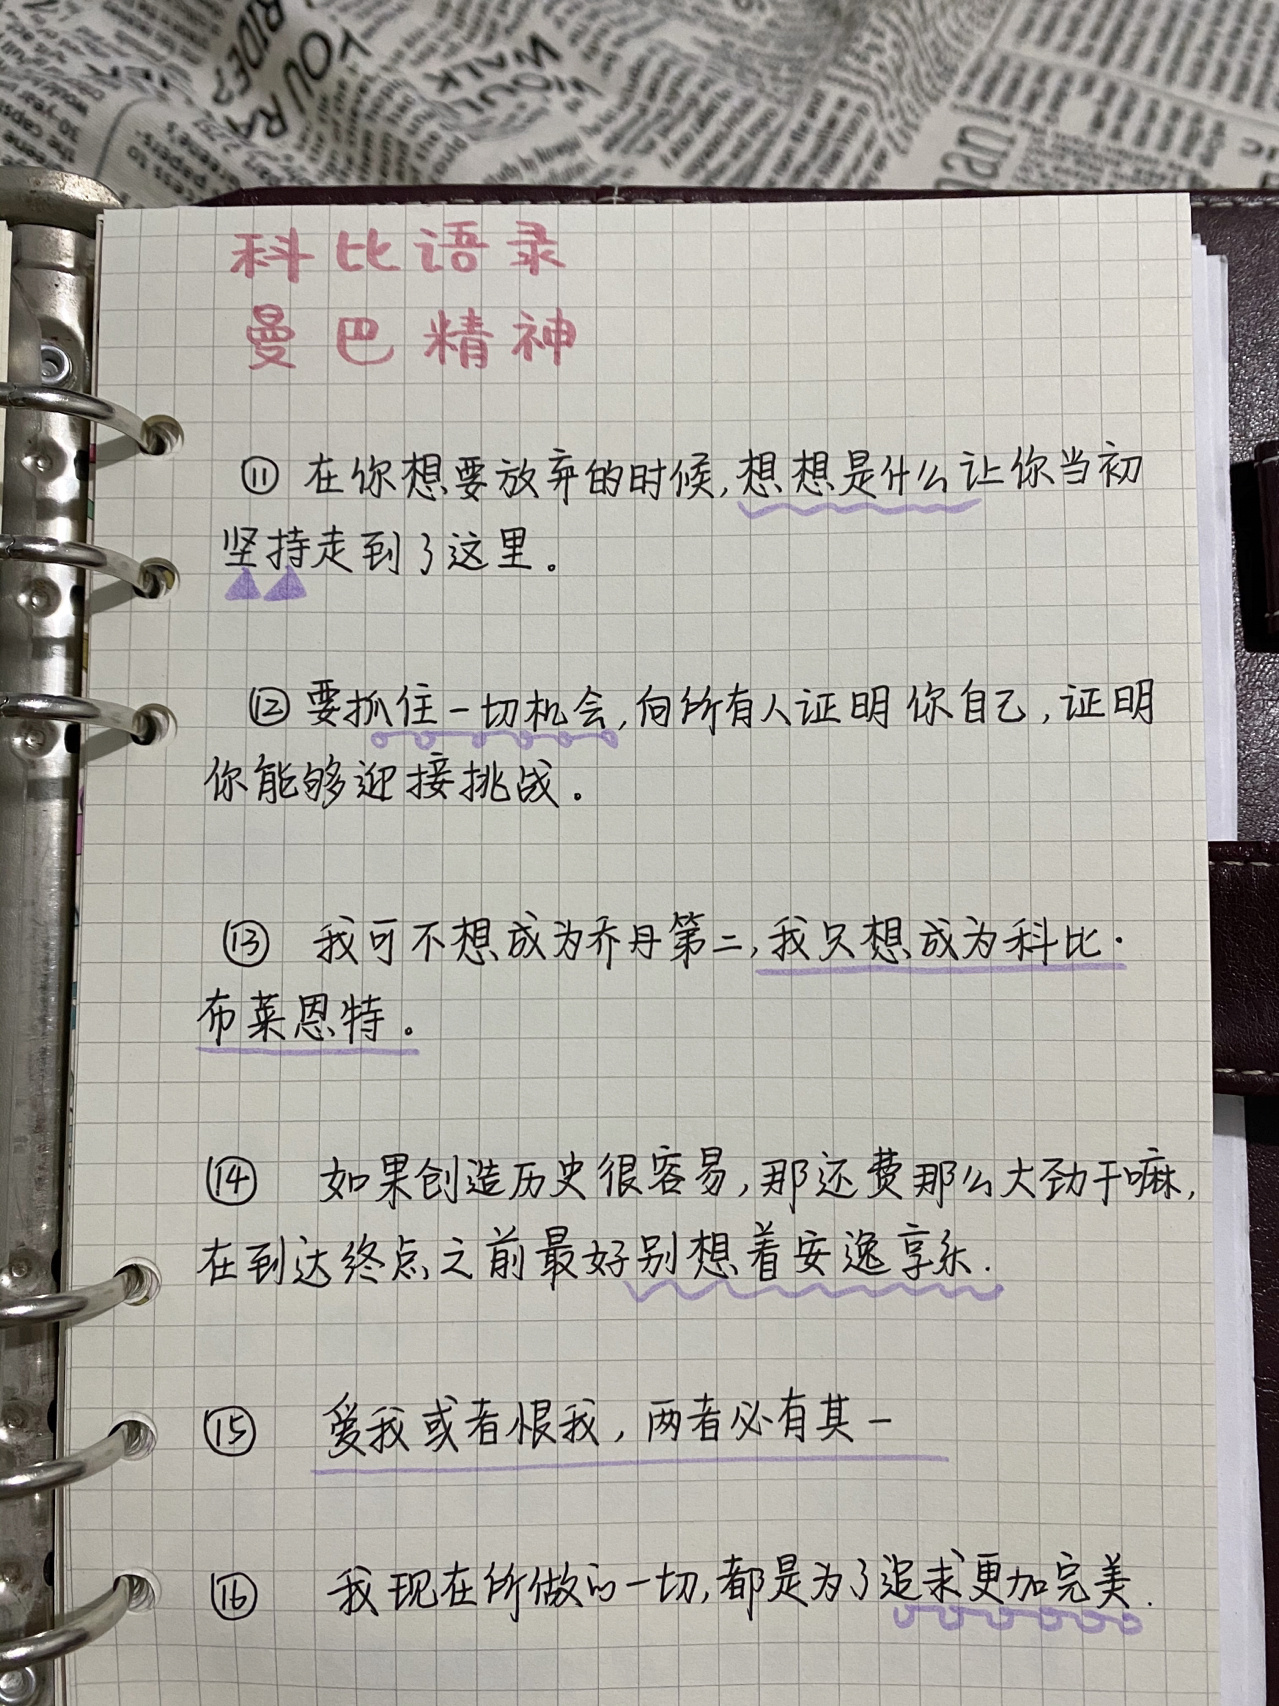 RIDE?
YOU RA
WALK
科比语录
曼巴精神
⑪ 在你想要放弃的时候,想想是什么让你当初
坚持走到了这里。
⑫ 要抓住一切机会,向所有人证明你自己,证明
你能够迎接挑战.
⑬ 我可不想成为乔丹第二,我只想成为科比·
布莱恩特。
⑭ 如果创造历史很容易,那还费那么大劲干嘛,
在到达终点之前最好别想着安逸享乐.
⑮ 爱我或者恨我,两者必有其一
⑯ 我现在所做的一切,都是为了追求更加完美.